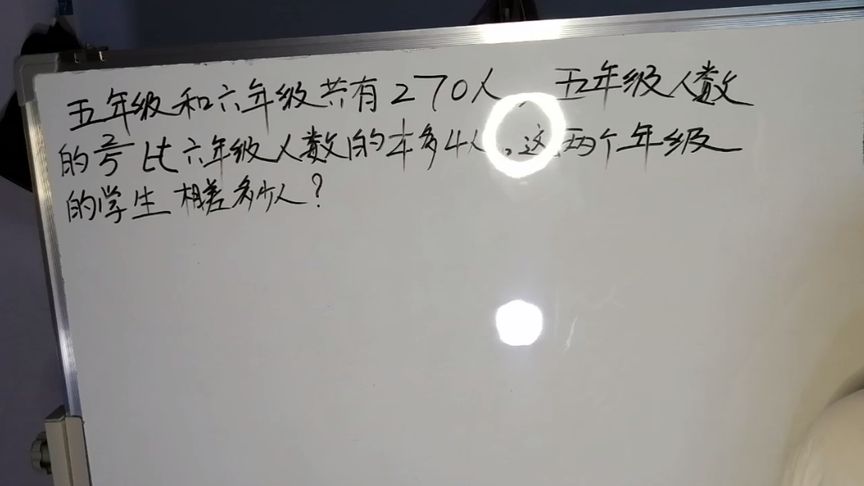 五年级和六年级共有270人,五年级人数
的2/5比六年级人数的1/4多4人,这两个年级
的学生相差多少人?